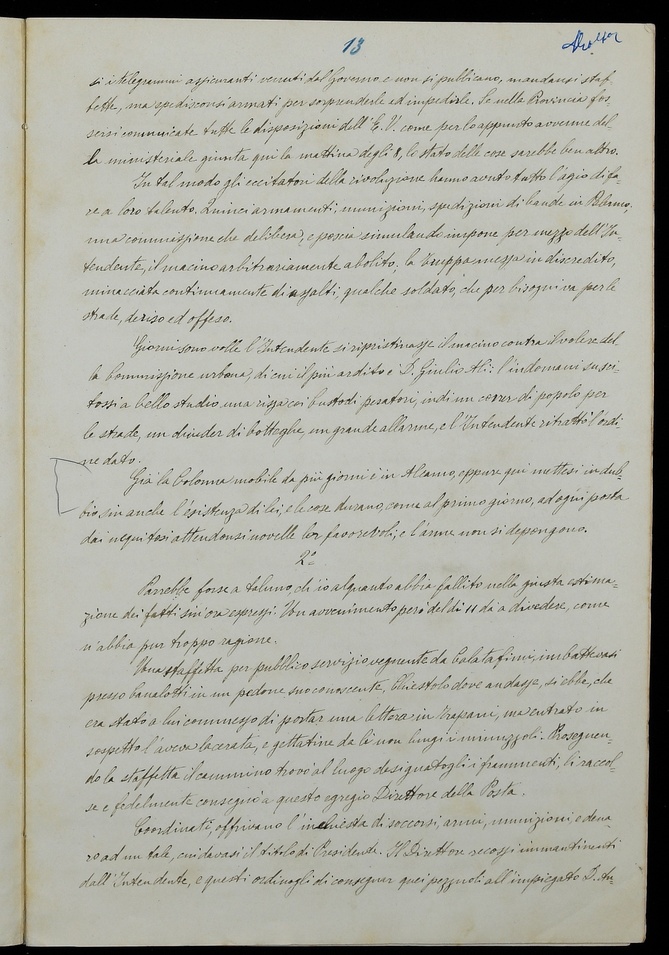 13
si i telegrammi assicuranti venuti dal Governo e non si publicano, mandansi staf-
fette, ma spedisconsi armati per sorprenderle ed impedirle. Se nella Provincia fos-
sersi comunicate tutte le disposizioni dell'E. V. come per lo appunto avvenne del-
la ministeriale giunta qui la mattina degli 8, lo stato delle cose sarebbe ben altro.
In tal modo gli eccitatori della rivoluzione hanno avuto tutto l'agio di fa-
re a loro talento. Quinci armamenti, munizioni, spedizioni di bande in Palermo,
una commissione che delibera, e poscia simulando impone per mezzo dell'In-
tendente, il macino arbitrariamente abolito, la Truppa messa in discredito,
minacciata continuamente di assalti, qualche soldato, che per bisogni va per le
strade, deriso ed offeso.
Giorni sono volle l'Intendente si ripristinasse il macino contra il volere del-
la Commissione urbana, di cui il più ardito è D. Giulio Alì: l'indomani susci-
tossi a bello studio una rissa coi custodi pesatori, indi un correr di popolo per
le strade, un chiuder di botteghe, un grande allarme, e l'Intendente ritrattò l'ordi-
ne dato.
Già la Colonna mobile da più giorni è in Alcamo, eppure qui mettesi in dub-
bio sin anche l'esistenza di lei, e le cose durano, come al primo giorno, ad ogni posta
dai nequitosi attendonsi novelle lor favorevoli, e l'arme non si depongono.
2°
Parrebbe forse a taluno, ch'io alquanto abbia fallito nella giusta estima-
zione dei fatti sin'ora espressi. Un avvenimento però del dì 11 dà a divedere, come
n'abbia pur troppo ragione.
Una staffetta per pubblico servizio vegnente da Calatafimi, imbatterasi
presso Canalotti in un pedone suo conoscente. Chiestolo dove andasse, si ebbe, che
era stato a lui commesso di portar una lettera in Trapani, ma entrato in
sospetto l'aveva lacerata, e gettatine da lì non lungi i minuzzoli. Proseguen-
do la staffetta il cammino trovò al luogo designatogli i frammenti, li raccol-
se e fedelmente consegnò a questo egregio Direttore della Posta.
Coordinati, offrivano l'inchiesta di soccorsi, armi, munizioni e dena-
ro ad un tale, cui davasi il titolo di Presidente. Il Direttore recossi immantinenti
dall'Intendente, e questi ordinogli di consegnar quei pezzuoli all'impiegato D. An-